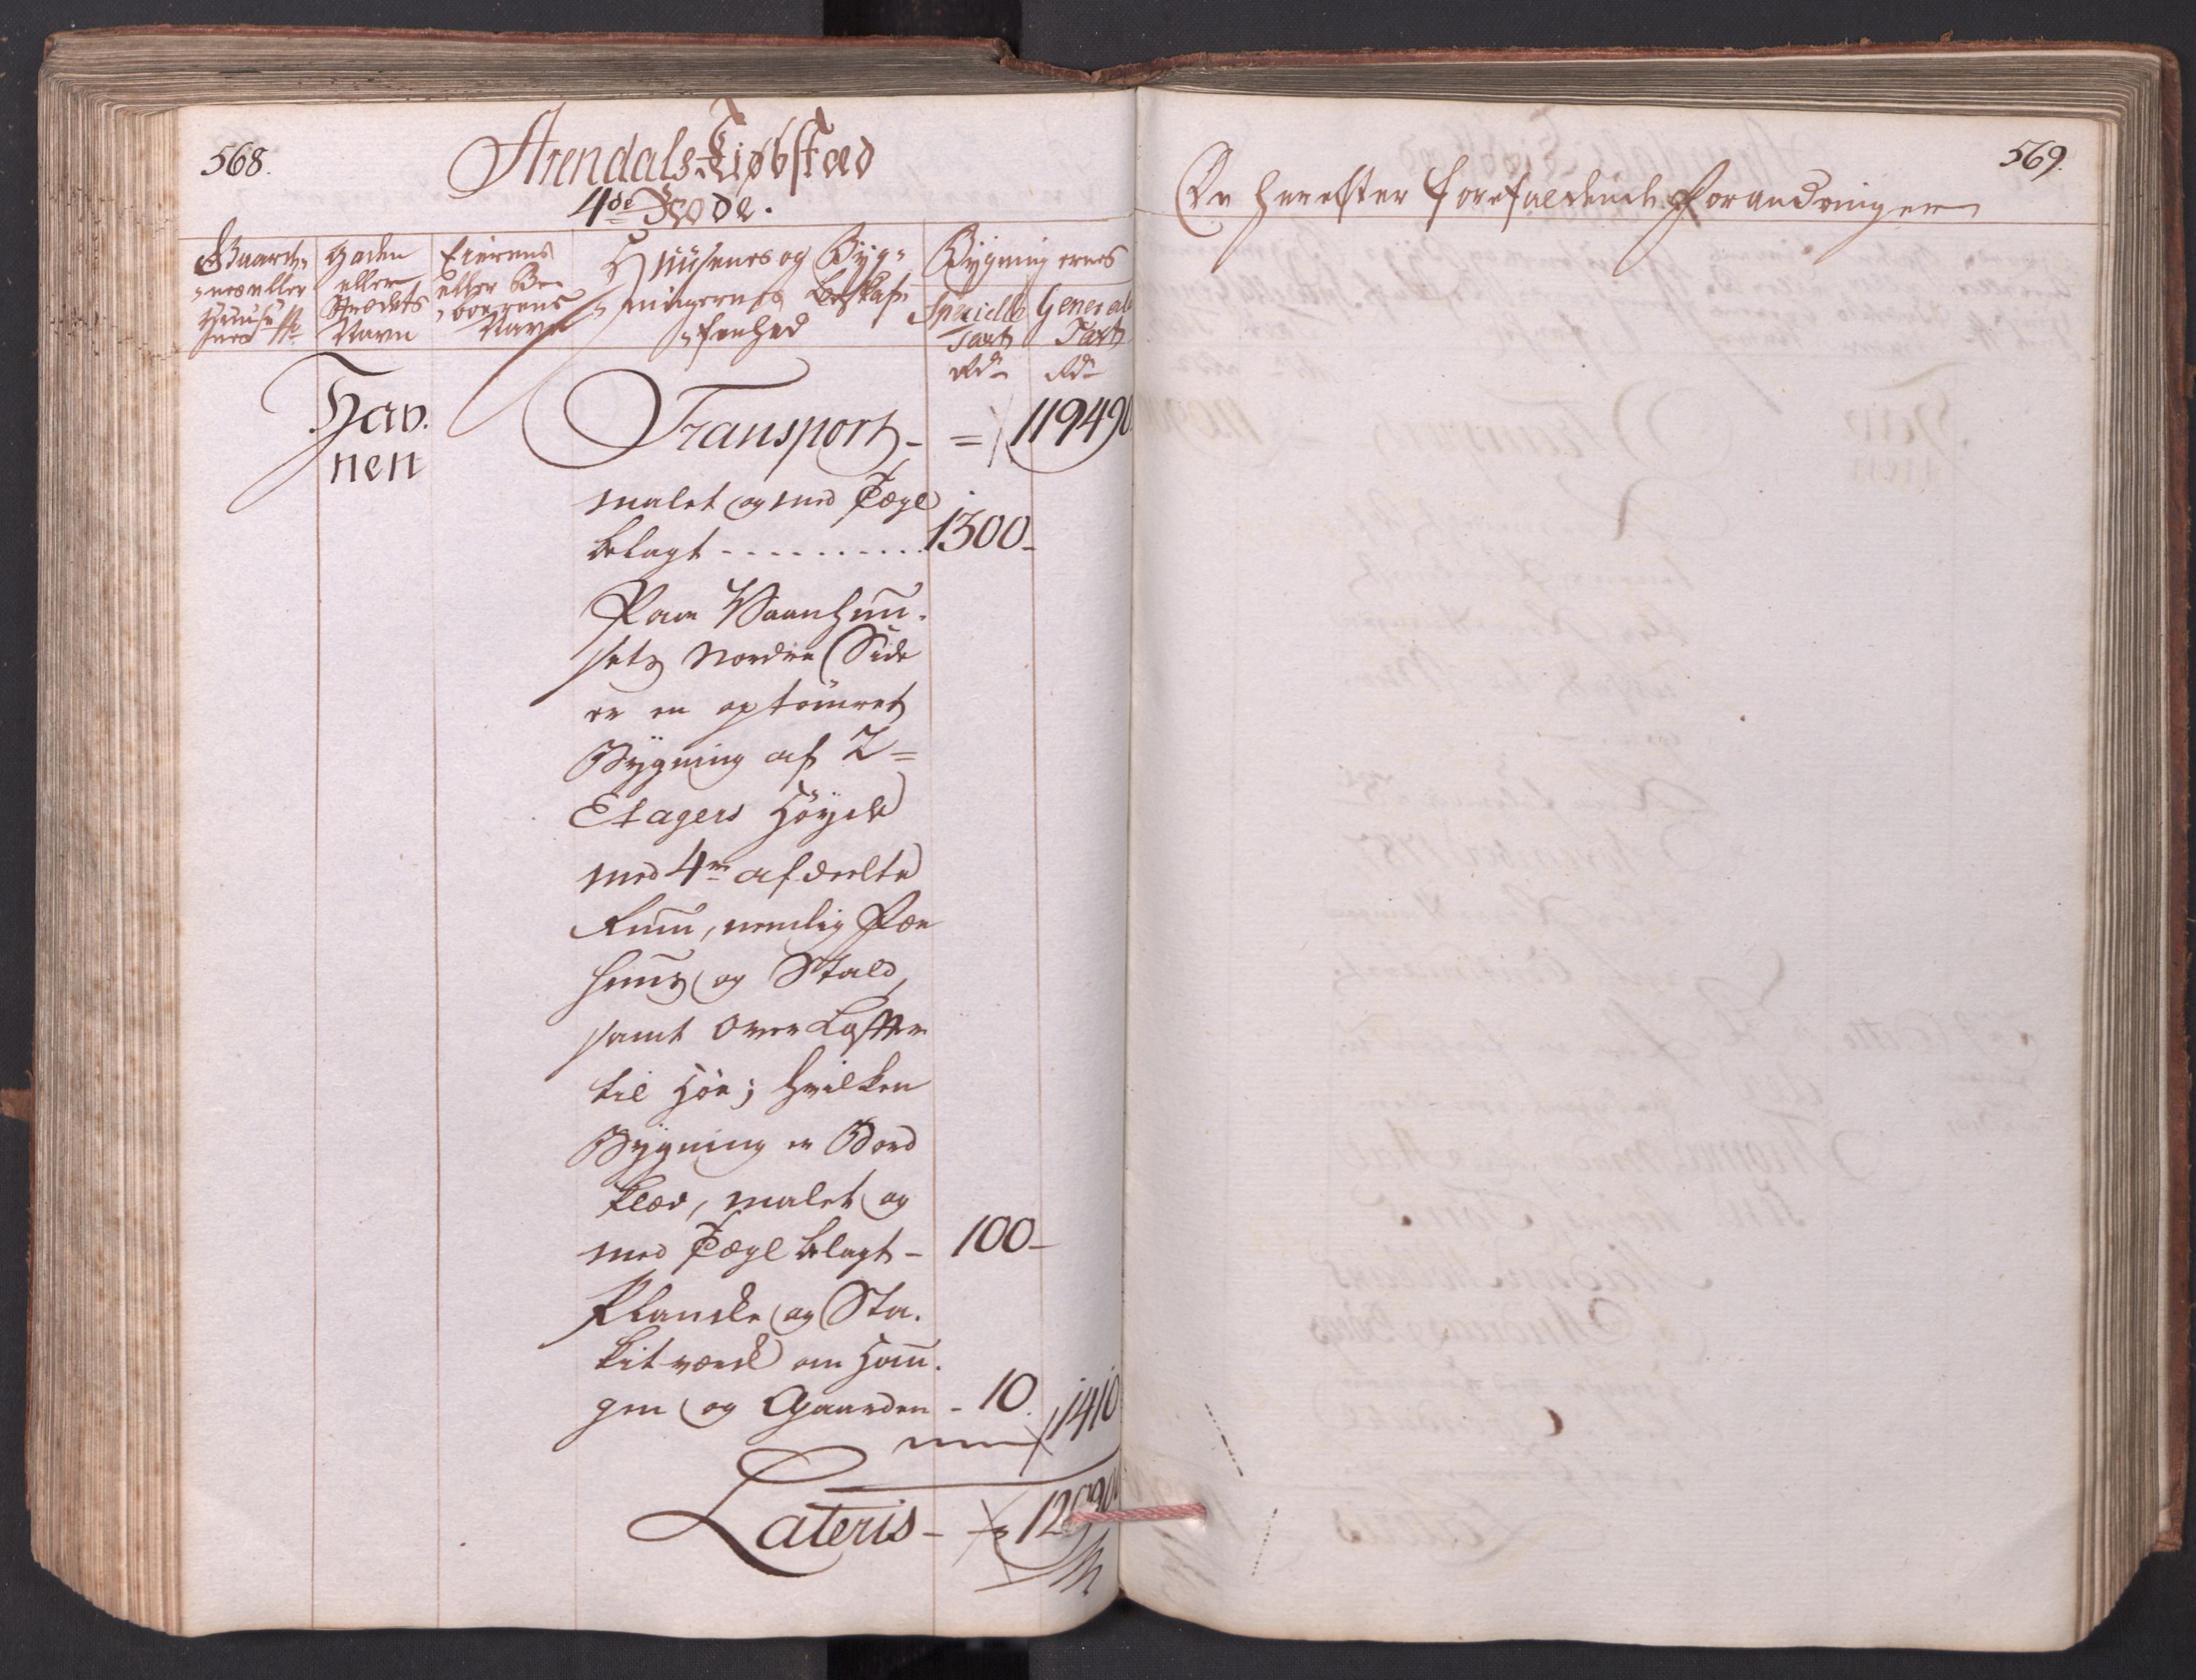 568.
Arendals Kiøbstæd
4de Rode.
Gaarde-
nes eller
Huuse
nes No
Gaden
eller
Strædets
Navn
Eierens
eller Be-
boerens
Navn
Huusenes og Byg-
ningernes Beskaf-
fenhed
Bygningernes
Specielle
Taxt
Rdr
Generale
Taxt
Rdr
Hav-
nen
Transport - = 119490
malet og med Tægl
belagt - - - - - - - - - 1300 -
Paa Vaanhuu-
sets Nordre Side
er en optømret
Bygning af 2 =
Etagers Høyde
med 4re afdeelte
Rum, nemlig Fæe
huus og Stald,
samt Over Loffter
til Høe; hvilken
Bygning er Bord
klæd, malet og
med Tægl belagt - 100 -
Plancke og Sta-
kit værck om Hau-
gen og Gaarden - 10. 1410
Lateris - 120900
569.
De herefter forefaldende Forandringer